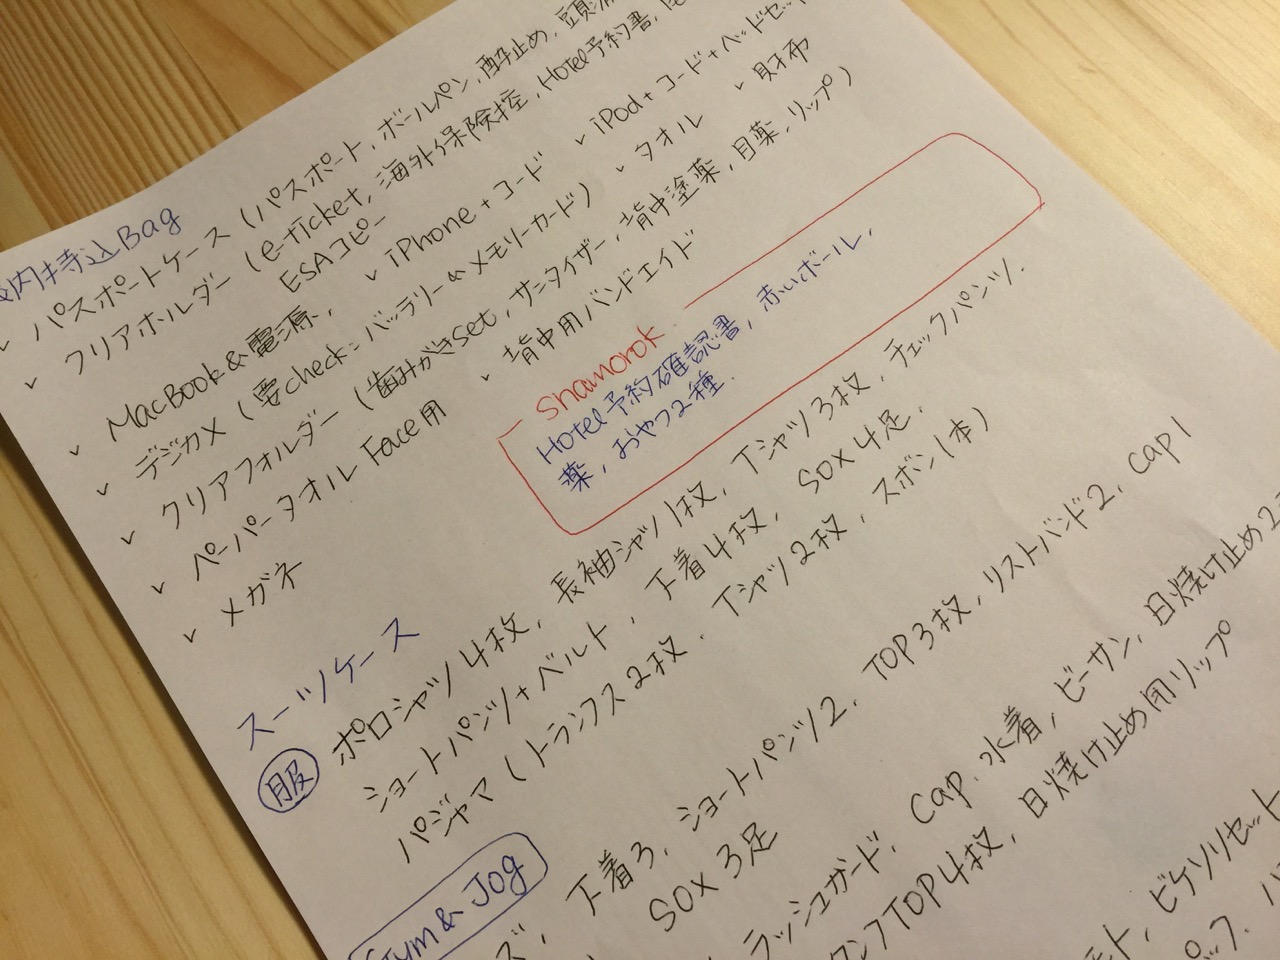 内持込Bag
✓ パスポートケース(パスポート, ボールペン, 酔止め, 頭
✓ クリアホルダー(e-ticket, 海外保険控, Hotel予約書,
ESAコピー
✓ MacBook&電源, ✓ iPhone+コード ✓ iPod+コード+ヘッドセット
✓ デジカメ(要check=バッテリー&メモリーカード) ✓ タオル ✓ 財布
✓ クリアフォルダー(歯みがきset, サニタイザー, 背中塗薬, 目薬, リップ)
✓ ペーパータオルFace用 ✓ 背中用バンドエイド
✓ メガネ
shamorok
Hotel予約確認書, 赤いボール,
薬, おやつ2種.
スーツケース
服 ポロシャツ4枚, 長袖シャツ1枚, Tシャツ3枚, チェックパンツ,
ショートパンツ+ベルト, 下着4枚, SOX4足,
パジャマ(トランクス2枚, Tシャツ2枚, ズボン1本)
Gym&Jog
ズ, 下着3, ショートパンツ2, TOP3枚, リストバンド2, Cap1
SOX3足
ラッシュガード, Cap, 水着, ビーサン, 日焼け止め2
タンクTOP4枚, 日焼け止め用リップ
ト, ヒゲソリセット